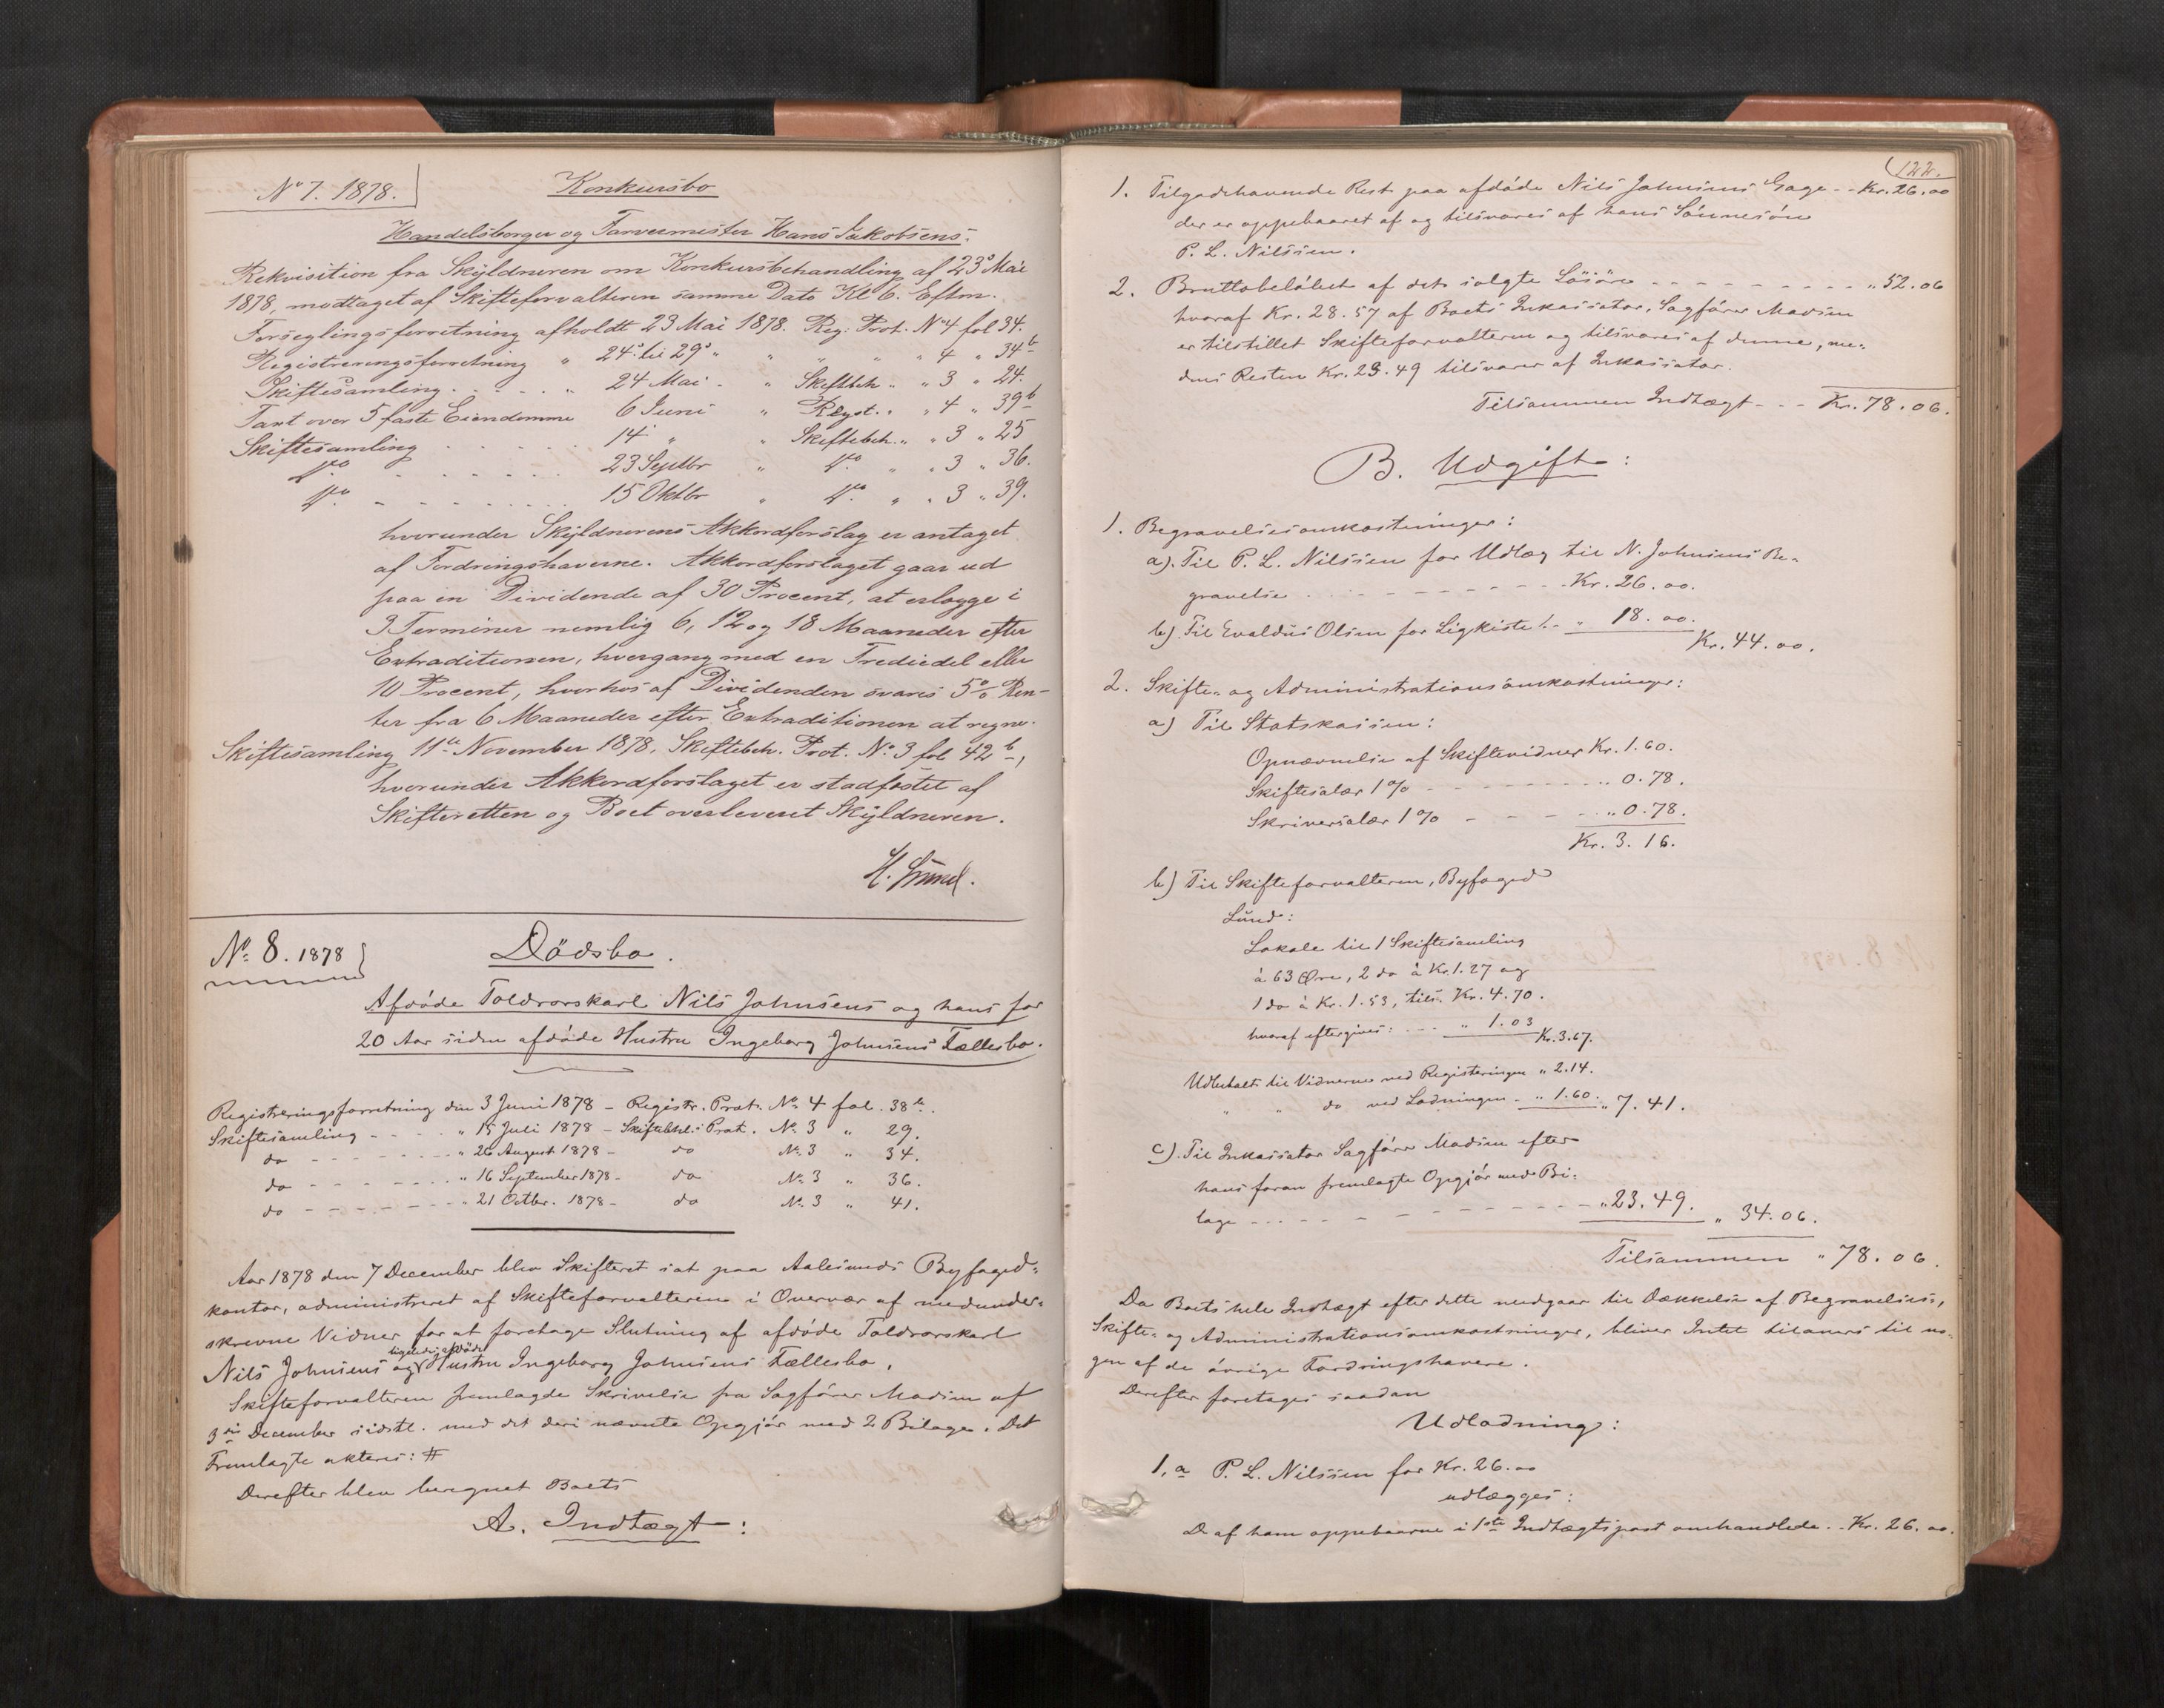 No 7. 1878.
Konkursbo
Handelsborger og Farvermester Hans Jakobsens.
Rekvisition fra Skyldneren om Konkursbehandling af 23de Mai
1878, modtaget af Skifteforvalteren samme Dato Kl 6. Eftm.
Forseglingsforretning afholdt 23 Mai 1878. Reg: Prot. No 4 fol 34.
Registreringsforretning " 24de til 29de " " " " 4 " 34b
Skiftesamling - - - " 24 Mai - " Skiftbeh. " " 3 " 24.
Taxt over 5 faste Eiendomme 6 Juni " Regst. " " 4 " 39b
Skiftesamling - - - 14 " " Skiftebeh. " " 3 " 25
do - - - 23 Septbr " do " " 3 " 36.
do - - - 15 Oktbr " do " " 3 " 39.
hvorunder Skyldnerens Akkordforslag er antaget
af Fordringshaverne. Akkordforslaget gaar ud
paa en Dividende af 30 Procent, at erlægge i
3 Terminer nemlig 6, 12 og 18 Maaneder efter
Extraditionen, hvergang med en Trediedel eller
10 Procent, hvorhos af Dividenden svares 5% Ren-
ter fra 6 Maaneder efter Extraditionen at regne.
Skiftesamling 11te November 1878, Skiftebeh. Prot. No. 3 fol 42b,
hvorunder Akkordforslaget er stadfæstet af
Skifteretten og Boet overleveret Skyldneren.
No. 8. 1878
Dödsbo.
Afdöde Toldrorskarl Nils Johnsens og hans for
20 Aar siden afdöde Hustru Ingeborg Johnsens Fællesbo.
Registreringsforretning den 3 Juni 1878 - Registr. Prot. No. 4 fol. 38b.
Skiftesamling - - - " 15 Juli 1878 - Skiftebhl: Prot. No. 3 " 29.
do - - - " 26 August 1878 - do No. 3 " 34.
do - - - " 16 September 1878 - do No. 3 " 36.
do - - - " 21 Octbr. 1878 - do No. 3 " 41.
Aar 1878 den 7 December blev Skifteret sat paa Aalesunds Byfoged-
kontor, administreret af Skifteforvalteren i Overvær af medunder-
skrevne Vidner for at foretage Slutning af afdöde Toldrorskarl
Nils Johnsens og ligeledes afdöde Hustru Ingeborg Johnsens Fællesbo.
Skifteforvalteren fremlagde Skrivelse fra Sagförer Madsen af
3die December sidstl. med det deri nævnte Opgjör med 2 Bilage. Det
Fremlagte akteres: #
Derefter blev beregnet Boets
A. Indtægt:
122.
1. Tilgodehavende Rest paa afdöde Nils Johnsens Gage - - Kr. 26.00
der er oppebaaret af og tilsvares af hans Sönnesön
P. L. Nilssen.
2. Bruttobelöbet af det solgte Lösöre - - - " 52.06
hvoraf Kr. 28.57 af Boets Inkassator, Sagförer Madsen
er tilstillet Skifteforvalteren og tilsvares af denne, me-
dens Resten Kr. 23.49 tilsvares af Inkassator.
Tilsammen Indtægt - - - Kr. 78.06.
B. Udgift:
1. Begravelsesomkostninger:
a). Til P. L. Nilssen for Udlæg til N. Johnsens Be-
gravelse - - - Kr. 26.00.
b). Til Evaldus Olsen for Ligkiste - " 18.00.
Kr. 44.00.
2. Skifte- og Administrationsomkostninger:
a) Til Statskassen:
Opnævnelse af Skiftevidner Kr. 1.60.
Skiftesalær 1 % - - - " 0.78.
Skriversalær 1 % - - - " 0.78.
Kr. 3.16.
b) Til Skifteforvalteren, Byfoged
Lund:
Lokale til 1 Skiftesamling
à 63 Øre, 2 do à Kr. 1.27 og
1 do à Kr. 1.53, tils. Kr. 4.70.
hvoraf eftergives: - - - " 1.03 Kr. 3.67.
Udbetalt til Vidnerne ved Registeringen " 2.14.
" " do ved Lodningen - " 1.60. " 7.41.
c). Til Inkassator Sagförer Madsen efter
hans foran fremlagte Opgjör med Bi-
lage - - - " 23.49. " 34.06.
Tilsammen " 78.06.
Da Boets hele Indtægt efter dette medgaar til Dækkelse af Begravelses-,
Skifte- og Administrationsomkostninger, bliver Intet tilovers til no-
gen af de övrige Fordringshavere.
Derefter foretages saadan
Udlodning:
1, a P. L. Nilssen for Kr. 26.00
udlægges:
D af ham oppebaarne i 1ste Indtægtspost omhandlede - - Kr. 26.00.